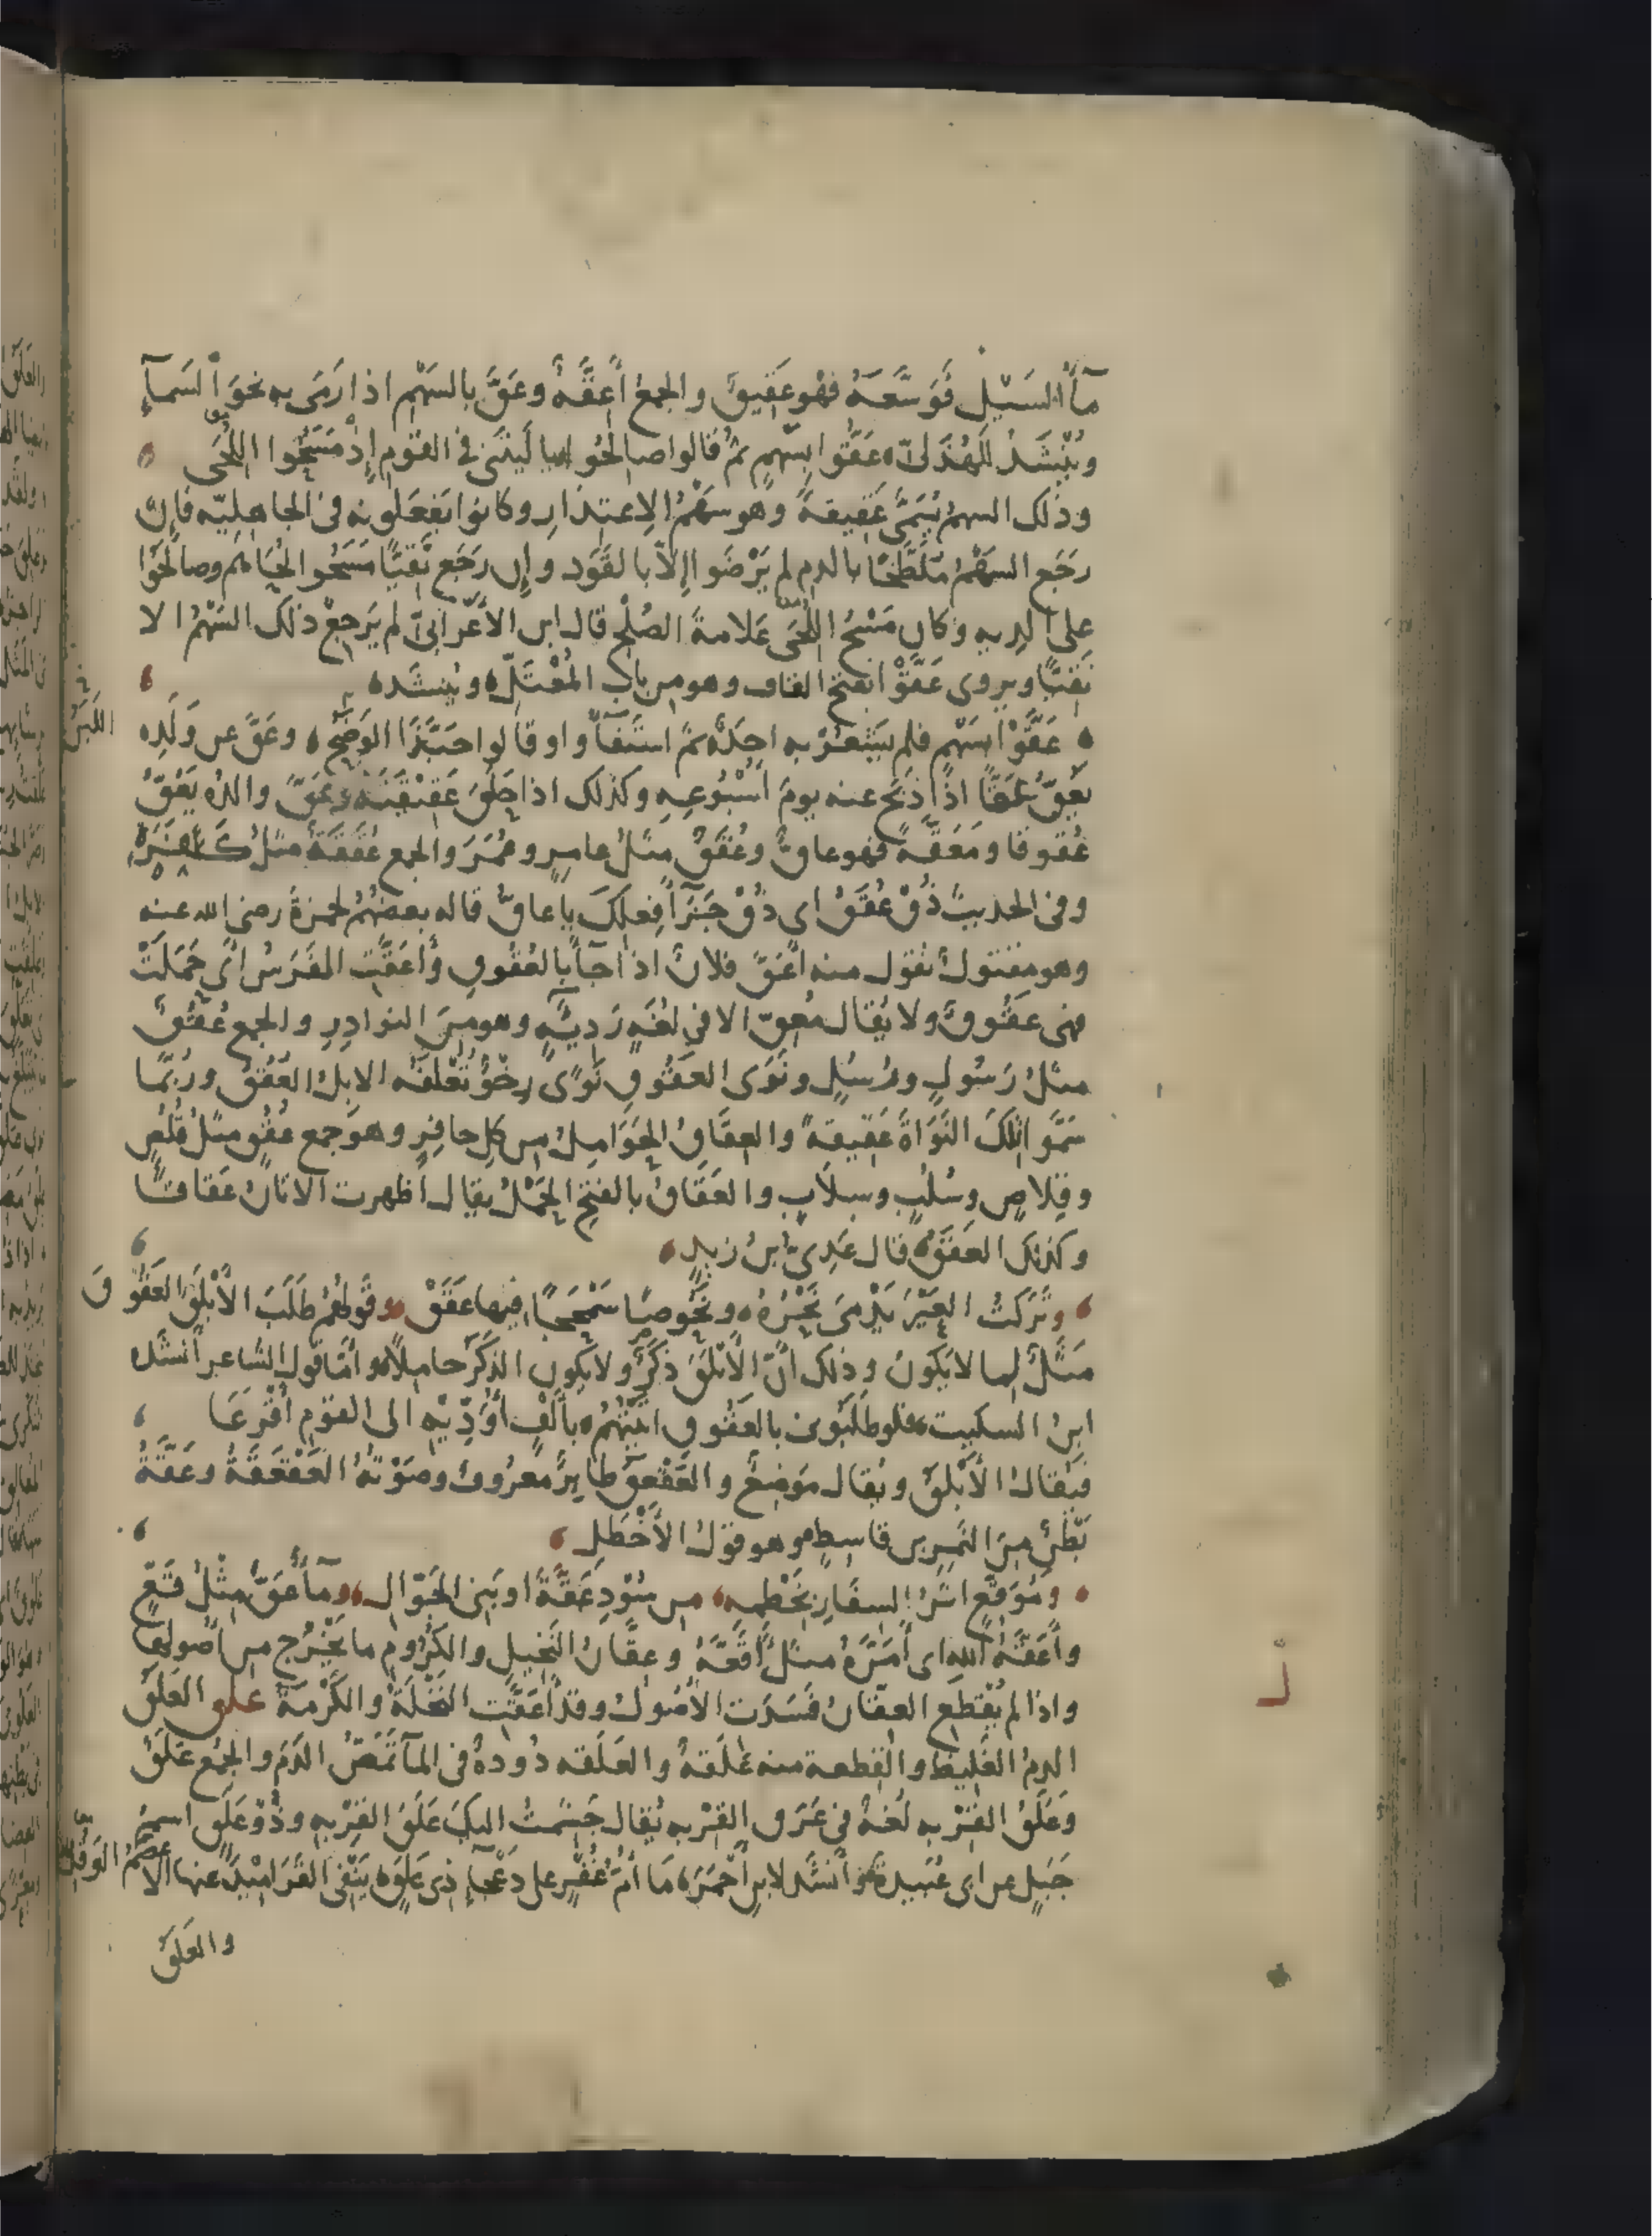 مآءُ السَيْلِ فَوَسَّعَهُ فهو عَقِيقٌ والجمعُ أَعِقَّةٌ وعَقَّ بالسَهْمِ اذا رَمَى به نحوَ السَمآءِ
ويُنْشَدُ للهُذَلىّ عَقُّوا بِسَهْمٍ ثمّ قالوا صالِحُوا يا لَيْتَنى فى القومِ إِذْ مَسَحُوا اللُّحَى
وذلك السهمُ يُسَمَّى عَقِيقةً وهو سَهْمُ الاِعتِذارِ وكانوا يَفعَلُونه فى الجاهِلِيّه فإن
رَجَع السَهْمُ مُلَطَّخًا بالدم لم يَرْضَوا إلاّ بالقَوَد وإن رَجَع نَقِيًّا مَسَحُوا لِحَاهُم وصالَحُوا
على الدِيه وكان مَسْحُ اللُّحَى عَلامةَ الصُلْحِ قال ابن الأعْرَابىّ لم يَرجِعْ ذلك السَهْمُ الا
نَقِيًّا ويروى عَقَّوْا بفتح القاف وهو من باب المُعْتَلّ ويُنشَد
عَقَّوْا بِسَهْمٍ فلم يَشْعُرْ به احَدٌ ثمّ استَفَآءُوا وقالوا حَبَّذَا الوَضَحُ وعَقَّ عن وَلَدِه
يَعُقُّ عَقًّا اذا ذَبَح عنه يومَ اسْبُوعِهِ وكذلك اذا حَلَقَ عَقِيقَتَه وعَقَّ والدَه يَعُقُّ
عُقُوقًا ومَعَقَّةً فهو عاقٌّ وعُقَقٌ مثلُ عامِرٍ وعُمَرَ والجمع عَقَقَةٌ مثلُ كَفَرَةٍ
وفى الحديث ذُقْ عُقَقُ اى ذُقْ جَزَآءَ فِعلِكَ يا عاقُّ قاله بعضُهُم لحمزةَ رضى الله عنه
وهو مقتول تقول منه أعَقَّ فلانٌ اذا جآءَ بالعُقُوقِ وأعَقَّتِ الفَرَسُ أى حَمَلَتْ
فهى عَقُوقٌ ولا يُقال مُعِقّ الا فى لُغَةٍ رَدِيئَةٍ وهو مِنَ النوادِرِ والجمع عُقُقٌ
مثلُ رَسُولٍ ورُسُلٍ ونَوَى العَقُوقِ نَوًى رِخْوٌ تُعْلَفُه الابلُ العُقُقُ ورُبَّما
سَمَّوا تِلكَ النَوَاةَ عَقِيقةً والعِقَاقُ الحَوَامِلُ من كلِ حافِرٍ وهو جمع عُقُقٍ مثلُ قُلُصٍ
وقِلاصٍ وسُلُبٍ وسِلابٍ والعَقَاقُ بالفتح الحَمْلُ يقال أظهرت الاتانُ عَقاقًا
وكذلك العَقَقُ قال عَدِىُّ بنُ زيدٍ
وتَرَكتُ العَيْرَ يَدْمَى نَحْرُهُ ونَحُوصًا سَمْحَجًا فيها عَقَقْ وقَولُهُم طَلَبَ الأَبْلَقَ العَقُوقَ
مَثَلٌ لِما لا يكونُ وذلك انّ الأَبْلَقَ ذكَرٌ ولا يكون الذَكَرُ حامِلًا وأمّا قول الشاعر أنشده
ابنُ السكيت فلو طلَبُونى بالعَقُوقِ اتَيْتُهُم بأَلْفٍ أُؤَدِّيْهِ الى القوم أَقْرَعَا
فيُقالُ الأَبْلَقُ ويُقال مَوضِعٌ والعَقْعَقُ طايِرٌ معرُوفٌ وصَوْتُهُ العَقْعَقَةُ وعَقَّةُ
بَطْنٌ مِنَ النَمِرِ بن قاسِطٍ وهو قولُ الأخْطَلِ
ومُوَقَّعٍ اثَرُ السِفَارِ بخَطْمِهِ من سُودِ عَقَّةَ او بَنِى الجَوّالِ ومآءٌ عُقٌّ مِثْلُ قُعٍّ
وأعَقَّهُ اللهُ اى أَمَرَّهُ مثلُ أَقَعَّهُ وعِقَّانُ النَخِيلِ والكُرُومِ ما يَخْرُج من أُصُولِها
واذا لم تُقْطَعِ العِقَّانُ فَسَدَت الأُصُولُ وقد أعَقَّت النَخْلَةُ والكَرْمَةُ علق العَلَقُ
الدمُ الغَلِيظُ والقِطعة منه عَلَقةٌ والعَلَقه دُودةٌ فى المآءِ تَمَصُّ الدَمَ والجمع عَلَقٌ
وعَلَقُ القِرْبه لُغةٌ فى عَرَق القِرْبه يُقال جَشِمتُ اليكَ عَلَقَ القِرْبهِ وذُو عَلَقٍ اسمُ
جَبَلٍ عن ابى عُبَيدة وأنشَد لابن أحْمَرَ مَا أُمُّ غُفْرٍ على دَعْجآءَ ذى عَلَقٍ يَنْفِى القَرَامِيدَ عنها الأَعْصَمُ الوَقِلُ
والعَلَقُ